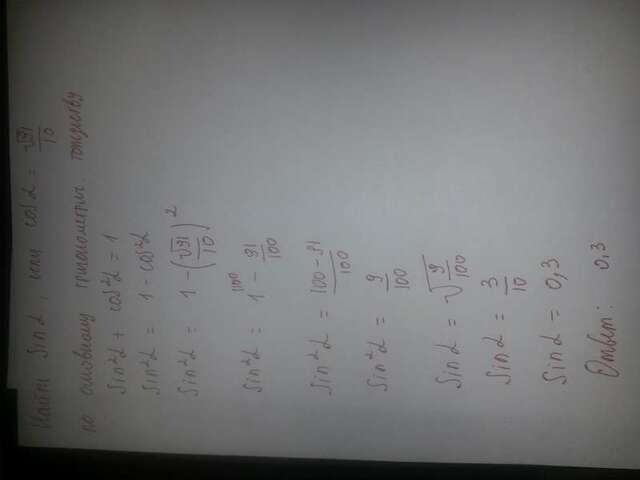 Найти Sin α, если cos α = √91/10
по основному тригонометрич. тождеству
Sin²α + cos²α = 1
Sin²α = 1 - cos²α
Sin²α = 1 - (√91/10)²
Sin²α = 1 - 91/100
Sin²α = 100-91/100
Sin²α = 9/100
Sin α = √9/100
Sin α = 3/10
Sin α = 0,3
Ответ: 0,3